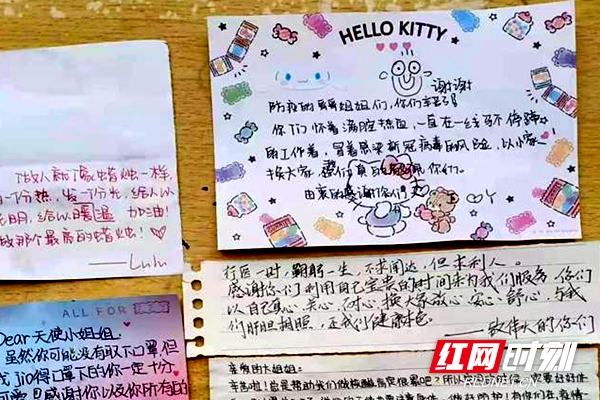 做人就该像蜡烛一样,
一分热,发一分光,给人以
光明,给以温暖 加油!
做那个最亮的蜡烛!
——Lulu
HELLO KITTY
谢谢
防疫的哥哥姐姐们,你们辛苦了
你们怀着满腔热血,一直在一线马不停蹄
的工作着,冒着感染新冠病毒的风险,以小家
换大家,
由衷的感谢你们
行医一时,鞠躬一生,不求闻达,但求利人。
感谢你们利用自己宝贵的时间来为我们服务,你们
以自己真心、关心、耐心,换大家放心、安心、舒心,与我
们肝胆相照,还我们健康色。
——致伟大的你们
ALL FOR
Dear天使小姐姐:
虽然你可能没有取下口罩,但
我jio得口罩下的你一定十分
可爱!感谢你以及你所有的
亲爱的大姐姐:
辛苦啦!总是帮助我们做核酸
红网时刻